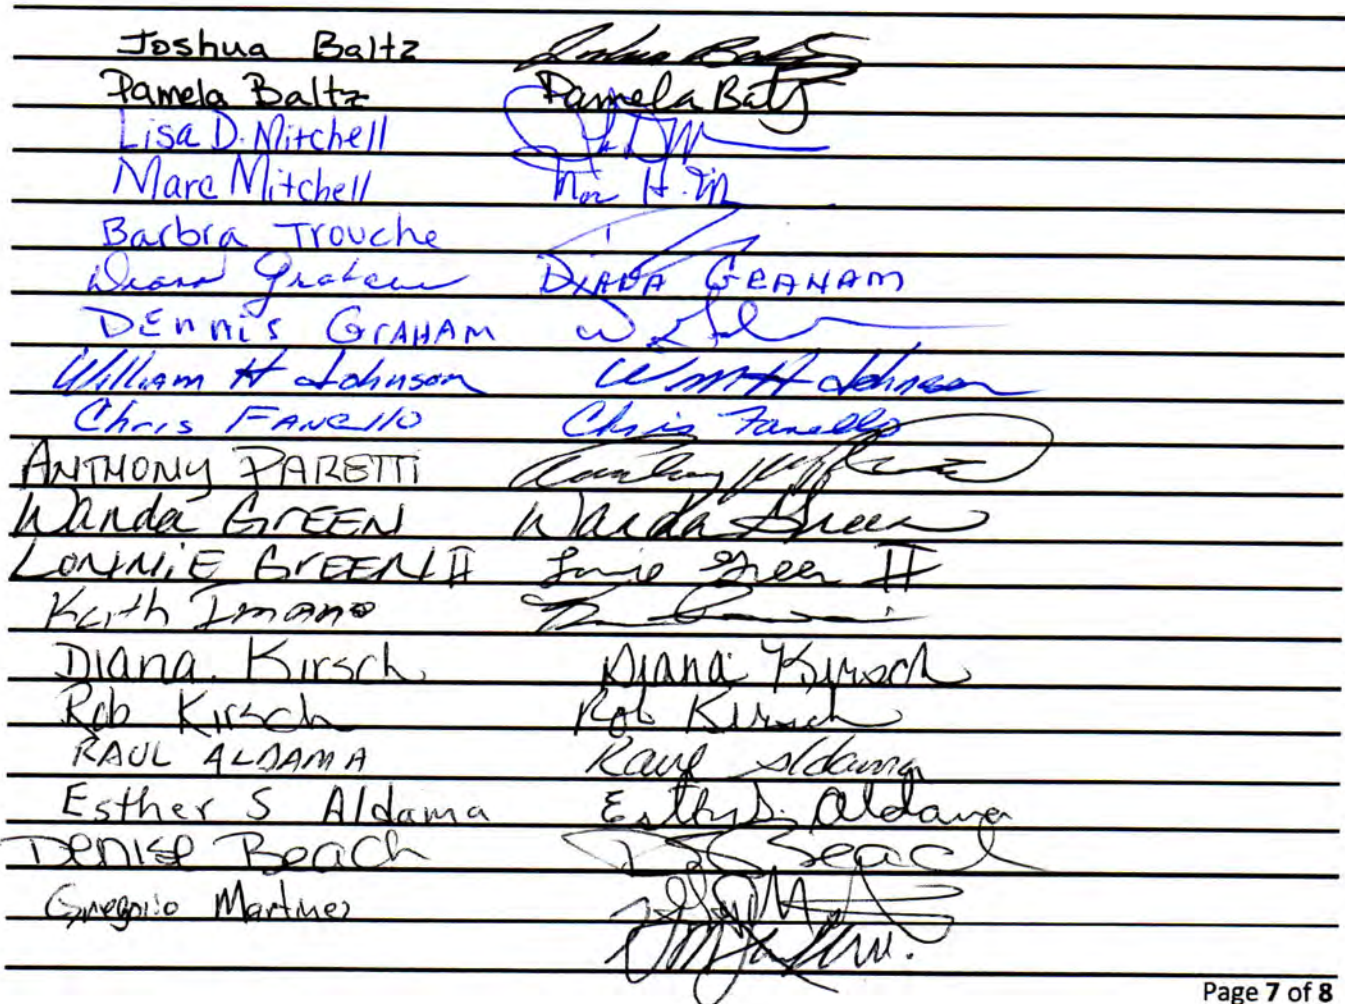 Joshua Baltz Joshua Baltz
Pamela Baltz Pamela Baltz
Lisa D. Mitchell
Marc Mitchell
Barbra Trouche
Diana Graham DIANA GRAHAM
DEnnis GrAHAM
William H Johnson Wm H Johnson
Chris FANEllo Chris Fanello
ANTHONY PARETTI
Wanda GrEEN Wanda Green
LONNiE GrEEN II Lonnie Green II
Keith Imano
Diana Kirsch Diana Kirsch
Rob Kirsch Rob Kirsch
RAUL ALDAMA Raul Aldama
Esther S Aldama Esther S. Aldama
Denise Beach D Beach
Gregorio Martinez
Page 7 of 8